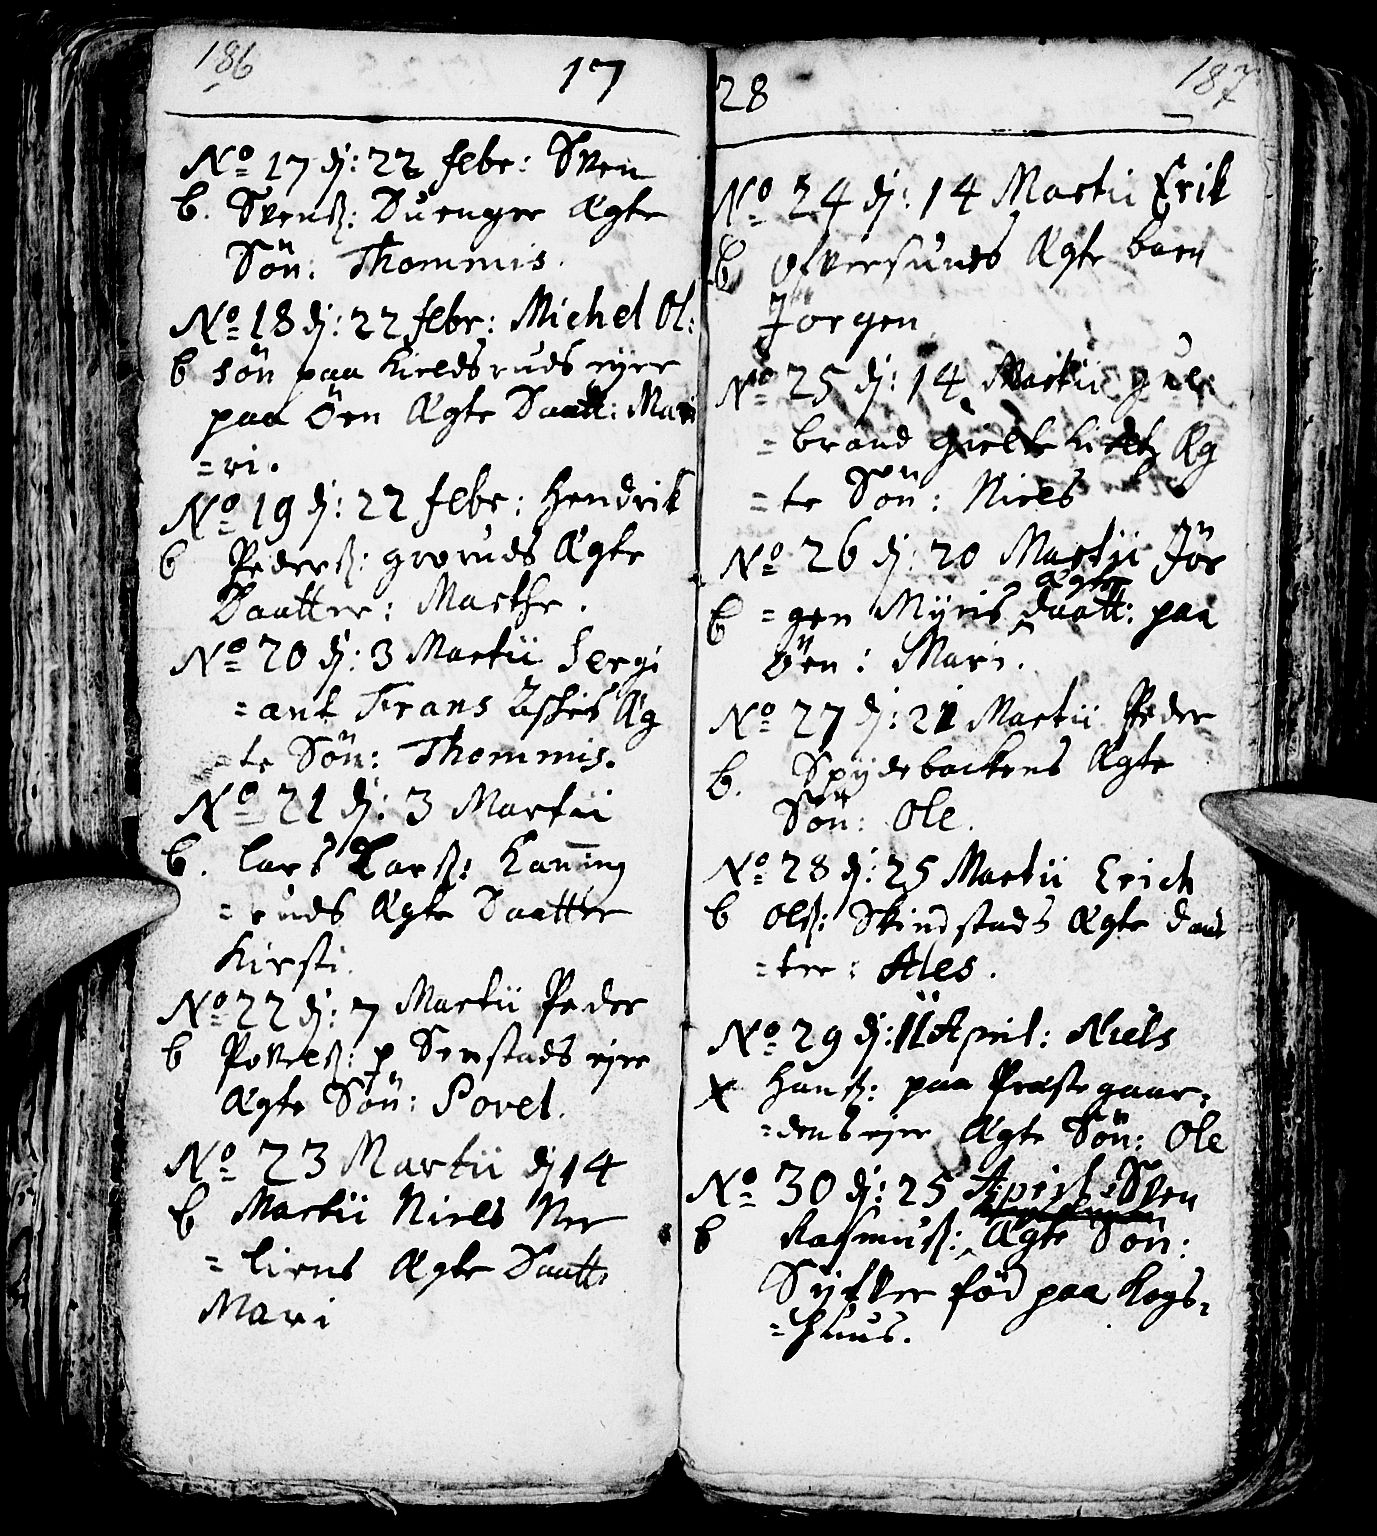 186
17
No 17 dj: 22 febr: Sven
b. Svenß: Duenger Ægte
Sön: Thommis.
No 18 dj: 22 febr: Michel Ol:
b sön paa Kieldsruds ejer
paa Öen Ægte Daatt: Mari
=ri.
No 19 dj: 22 febr: Hendrik
b Pederß: groruds Ægte
Daatter: Marthe.
No 20 dj: 3 Martii Sergi
=ant Frans Æg
=te Sön: Thommis.
No 21 dj: 3 Martii
b. Lars Larß: Kanning
=ruds Ægte Daatter
Kirsti.
No 22 dj: 7 Martii Peder
b Povelß: p Senstads ejer
Ægte Sön: Povel.
No 23 Martii dj 14
b Martii Niels Ner
=liens Ægte Daatt:
Mari
28
187
No 24 dj: 14 Martii Erik
b Ægte barn
Jörgen
No 25 dj: 14 Martii gul:
=brand Æg
=te Sön: Niels
No 26 dj: 20 Martji Jör
Ægte
b =gen Myris daatt: paa
Öen: Mari.
No 27 dj: 21 Martii Peder
b. Spydebackens Ægte
Sön: Ole.
No 28 dj: 25 Martii Erich
b Olß: Skindstads Ægte daat
=ter: Ales.
No 29 dj: 11 April: Niels
x Hanß: paa Præstegaar=
=dens ejer Ægte Sön: Ole
No 30 dj: 25 April: Sven
b Rasmuß: Ægte Sön:
Syfver föd paa Kogs=
=huus.